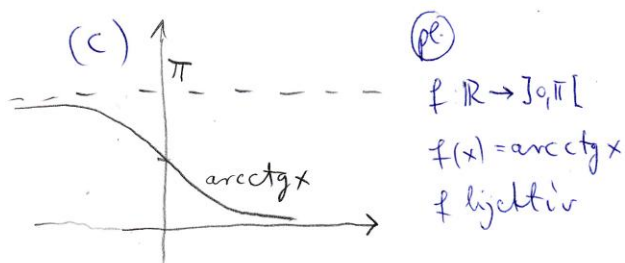 (C)
π
arcctg x
pl.
f ℝ → ]0,π[
f(x) = arcctg x
f bijektív